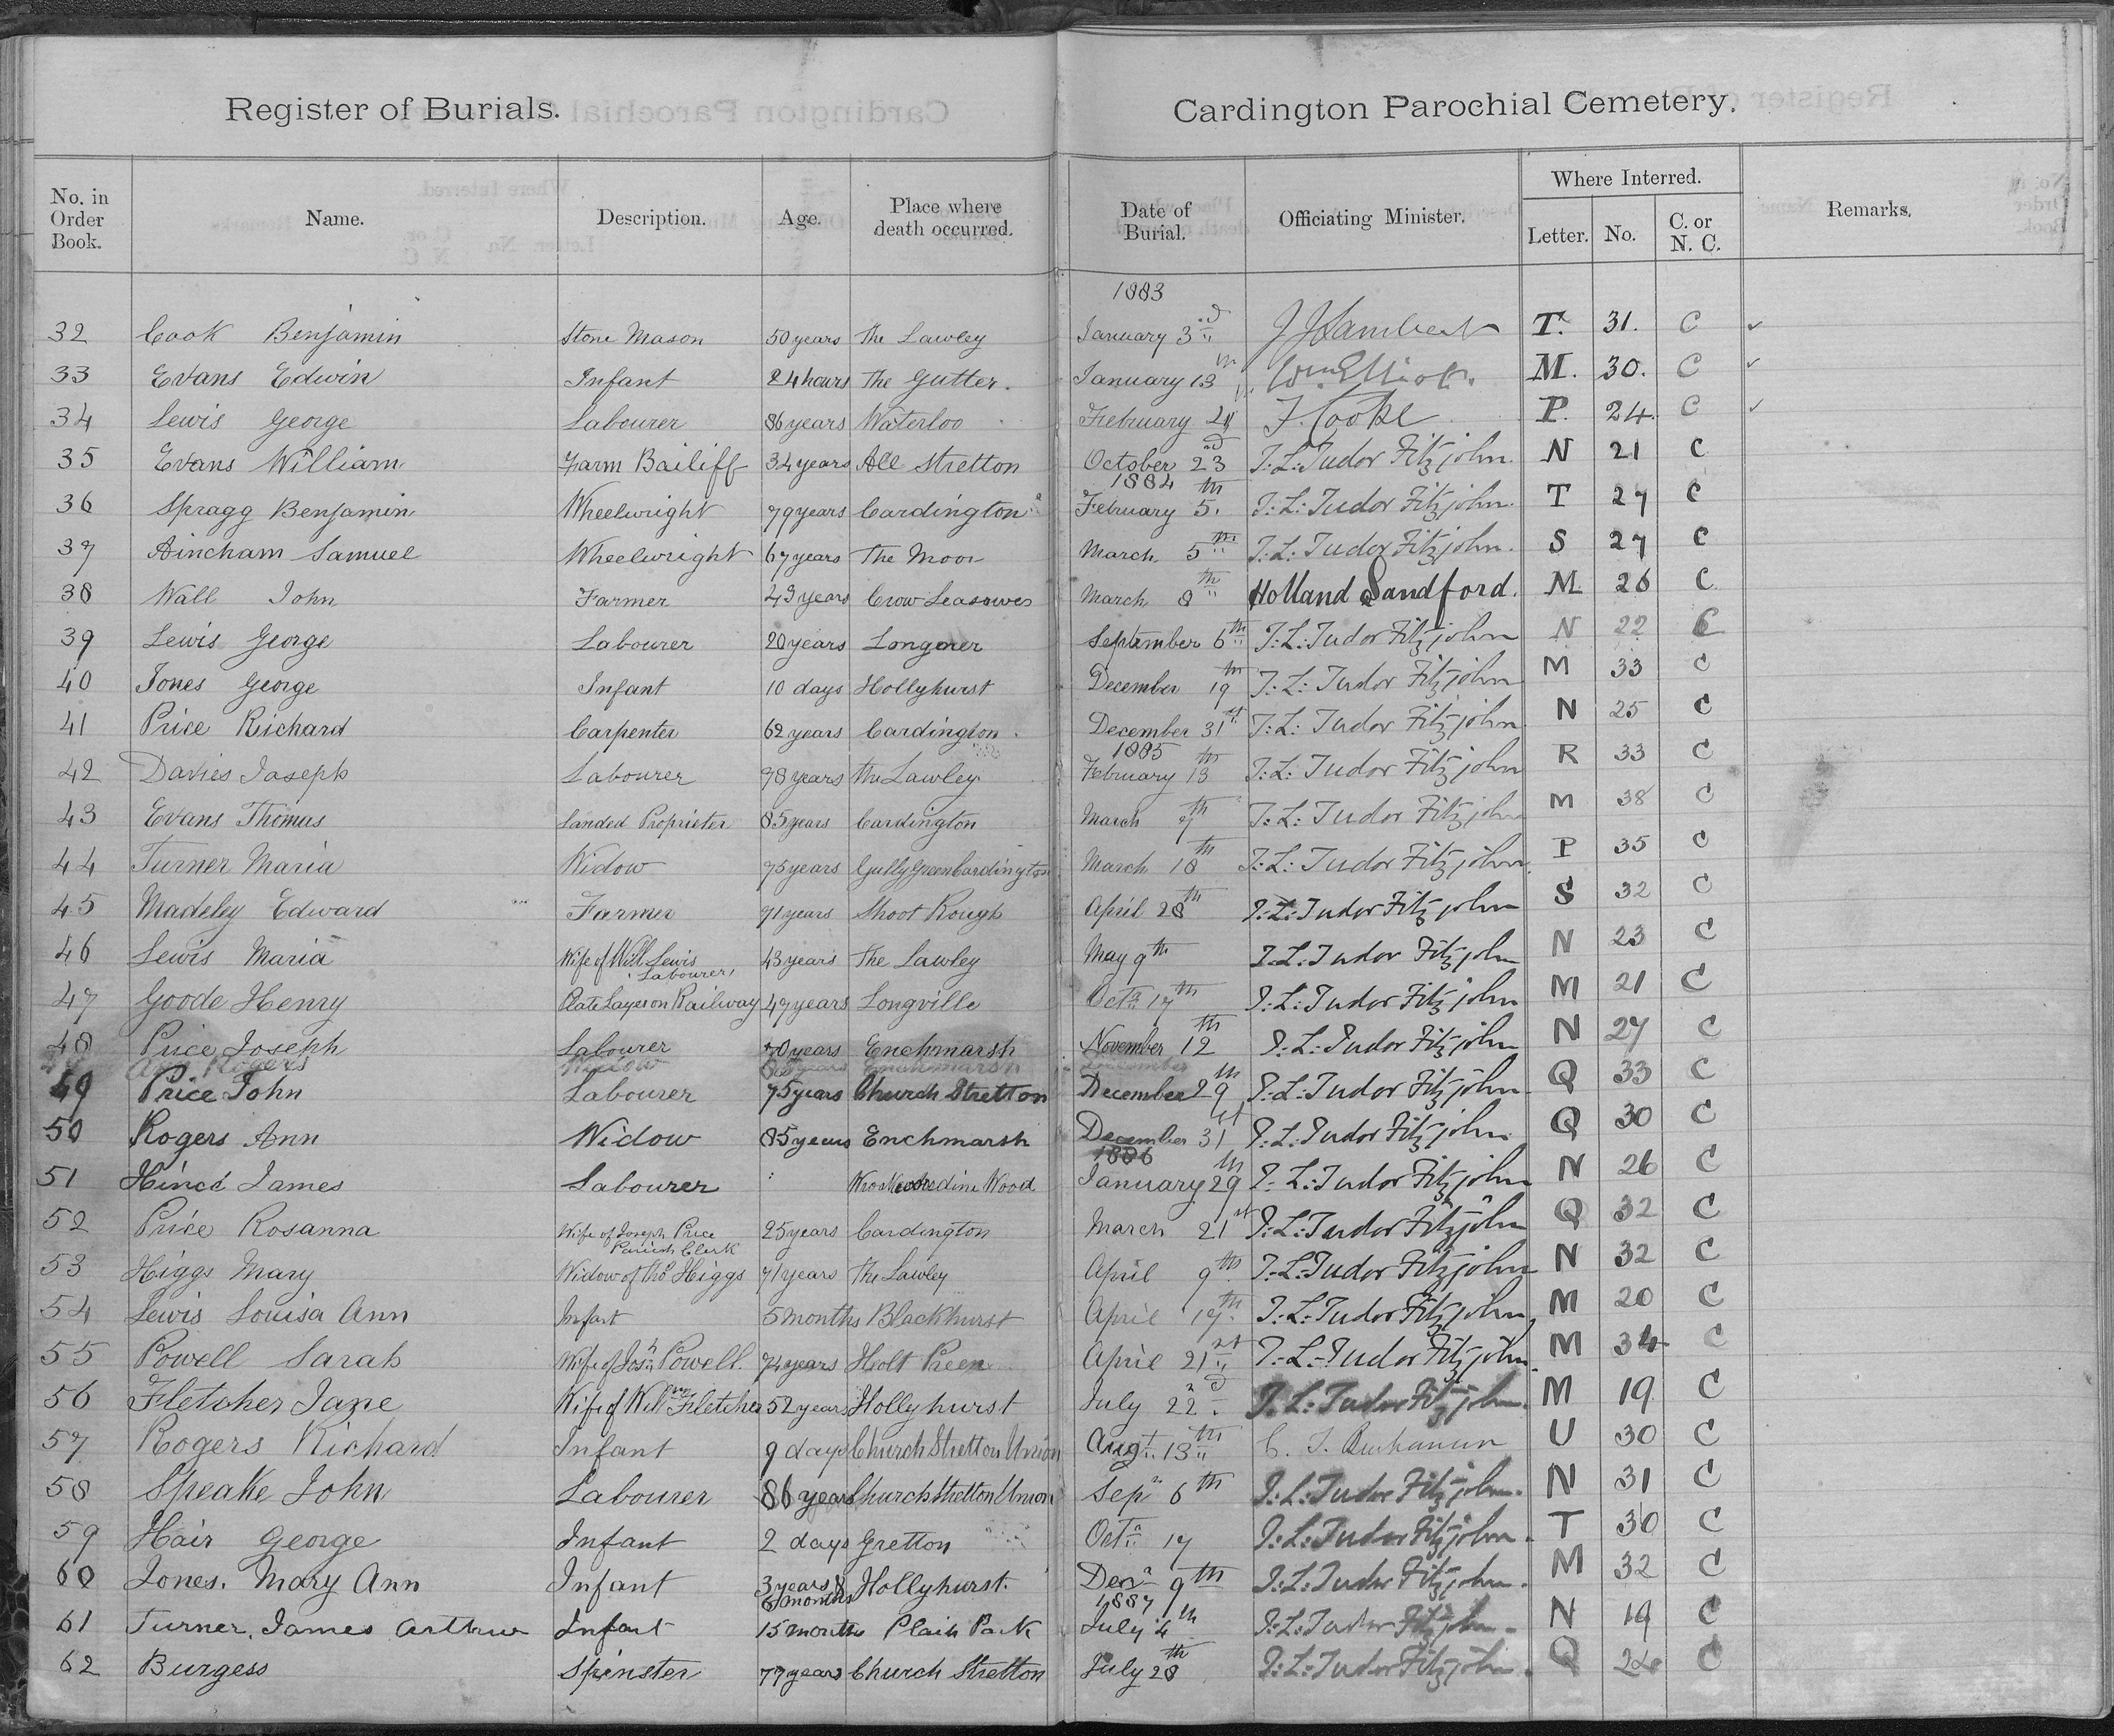 Register of Burials.
Cardington Parochial Cemetery.
No. in Order Book. Name. Description. Age. Place where death occurred. Date of Burial. Officiating Minister. Where Interred. Letter. No. C. or N. C. Remarks.
1883
32 Cook Benjamin Stone Mason 50 years The Lawley January 3rd J J Lambert T. 31. C ✓
33 Evans Edwin Infant 24 hours The Gutter. January 13th Wm Elliot. M. 30. C ✓
34 Lewis George Labourer 86 years Waterloo February F. Cooke P. 24. C ✓
35 Evans William Farm Bailiff 34 years All Stretton October 23rd T: L: Tudor Fitzjohn. N 21 C
1884
36 Spragg Benjamin Wheelwright 79 years Cardington February 5th T: L: Tudor Fitzjohn. T 27 C
37 Hincham Samuel Wheelwright 67 years The Moor March 5th T: L: Tudor Fitzjohn. S 27 C
38 Wall John Farmer 43 years Crow Leasowes March 8th Holland Sandford. M 26 C
39 Lewis George Labourer 20 years Longner September 6th T: L: Tudor Fitzjohn N 22 C
40 Jones George Infant 10 days Hollyhurst December 19th T: L: Tudor Fitzjohn M 33 C
41 Price Richard Carpenter 62 years Cardington December 31st T: L: Tudor Fitzjohn N 25 C
1885
42 Davies Joseph Labourer 78 years The Lawley February 13th T: L: Tudor Fitzjohn R 33 C
43 Evans Thomas Landed Proprieter 85 years Cardington March 7th T: L: Tudor Fitzjohn M 38 C
44 Turner Maria Widow 75 years Gully Green Cardington March 18th T: L: Tudor Fitzjohn. P 35 C
45 Madeley Edward Farmer 71 years Shoot Rough April 28th T: L: Tudor Fitzjohn S 32 C
46 Lewis Maria Wife of Will Lewis Labourer 43 years The Lawley May 9th T. L: Tudor Fitzjohn N 23 C
47 Goode Henry Plate Layer on Railway 47 years Longville Octr 17th T: L: Tudor Fitzjohn M 21 C
48 Price Joseph Labourer 70 years Enchmarsh November 12th T: L: Tudor Fitzjohn N 27 C
Ann Rogers Widow years Enchmarsh December
49 Price John Labourer 75 years Church Stretton December 29th T: L: Tudor Fitzjohn Q 33 C
50 Rogers Ann Widow 85 years Enchmarsh December 31st T: L: Tudor Fitzjohn. Q 30 C
1886
51 Hince James Labourer Wood January 29th T: L: Tudor Fitzjohn N 26 C
52 Price Rosanna Wife of Joseph Price Parish Clerk 25 years Cardington March 21st T: L: Tudor Fitzjohn Q 32 C
53 Higgs Mary Widow of Thos Higgs 71 years The Lawley April 9th T: L: Tudor Fitzjohn N 32 C
54 Lewis Louisa Ann Infant 5 months Blackhurst April 17th T: L: Tudor Fitzjohn, M 20 C
55 Powell Sarah Wife of Josh Powell. 74 years Holt Preen April 21st T: L: Tudor Fitzjohn. M 34 C
56 Fletcher Jane Wife of Willm Fletcher 52 years Hollyhurst July 22nd T: L: Tudor Fitzjohn. M 19 C
57 Rogers Richard Infant 9 days Church Stretton Union Augt 13th C. T. Buchanan U 30 C
58 Speake John Labourer 86 years Church Stretton Union Sepr 6th T: L: Tudor Fitzjohn. N 31 C
59 Hair George Infant 2 days Gretton Octr 17 T: L: Tudor Fitzjohn. T 30 C
60 Jones. Mary Ann Infant 3 years & 6 months Hollyhurst. Decr 9th T: L: Tudor Fitzjohn. M 32 C
1887
61 Turner. James Arthur Infant 15 months Plain Park July 4th T: L: Tudor Fitzjohn N 19 C
62 Burgess Spinster 77 years Church Stretton July 28th T: L: Tudor Fitzjohn. Q C